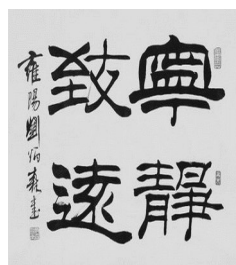 寧靜
致遠
雍陽劉炳森書